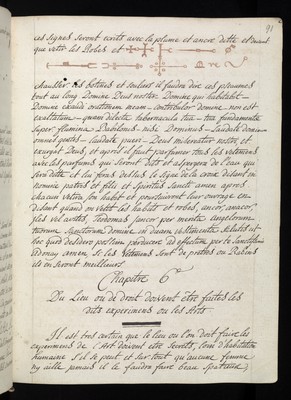 91
ces signes seront ecrits avec la plume et ancre ditte et avant
que vetir les Robes et
chausser les botines et souliers il faudra dire ces pseaumes
tout au long Domine Deus noster Domine qui habitabit
Domine exaudi orationem meam - confitebor domine - non est
exaltatum - quam dilecta tabernacula tua - fundamenta
super flumina Babilonis - nisi Dominus - laudate dominum
omnes gentes - laudate pueri - Deus misereatur nostri et
exurgat Deus et après il faut parfumer tous les vetemens
avec les parfums qui seront dits et aspergera de l'eau qui
sera ditte et lui fera dessus le signe de la croix disant in
nomine patris et filii et Spiritus Sancti amen apres
chacun vetira son habit et poursuivront leur ouvrage en
disant quand on vetit les habits et robes, ancor, anacor,
Theodomas per merita Angelorum
tuorum Sanctorum domine induam vestimenta Salutis ut
hoc quod desidero possim perducere ad effectum per te Sanctissime
Adonay amen Si les Vetemens sont de pretres ou Rabins
ils en seront meilleurs
Chapitre 6e
Du Lieu ou de droit doivent être faites les
dits experimens ou les Arts
Il est tres certain que le lieu ou l'on doit faire les
experimens de l'Art doivent etre Secrets, loin d'habitation
humaine S'il se peut et sur tout qu'aucune femme
n'y aille jamais il le faudra faire beau Spatieux,